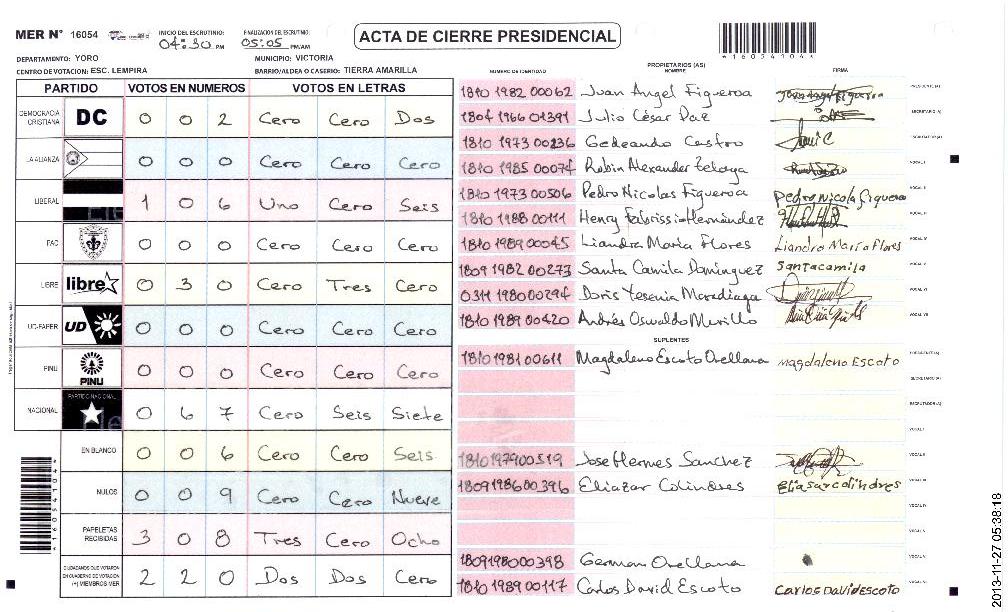 MER N° 16054 INICIO DEL ESCRUTINIO: 04:30 PM FINALIZACION DEL ESCRUTINIO: 05:05 PM/AM
ACTA DE CIERRE PRESIDENCIAL
*16054104*
DEPARTAMENTO: YORO MUNICIPIO: VICTORIA
CENTRO DE VOTACION: ESC. LEMPIRA BARRIO/ALDEA O CASERIO: TIERRA AMARILLA
PARTIDO VOTOS EN NUMEROS VOTOS EN LETRAS
DEMOCRACIA CRISTIANA DC 0 0 2 Cero Cero Dos
LA ALIANZA 0 0 0 Cero Cero Cero
LIBERAL 1 0 6 Uno Cero Seis
FAC 0 0 0 Cero Cero Cero
LIBRE libre 0 3 0 Cero Tres Cero
UD-FAPER UD 0 0 0 Cero Cero Cero
PINU PINU 0 0 0 Cero Cero Cero
NACIONAL PARTIDO NACIONAL 0 6 7 Cero Seis Siete
EN BLANCO 0 0 6 Cero Cero Seis
NULOS 0 0 9 Cero Cero Nueve
PAPELETAS RECIBIDAS 3 0 8 Tres Cero Ocho
CIUDADANOS QUE VOTARON EN CUADERNO DE VOTACION (+) MIEMBROS MER 2 2 0 Dos Dos Cero
PROPIETARIOS (AS)
NUMERO DE IDENTIDAD NOMBRE FIRMA
1810 1982 00062 Juan Angel Figueroa PRESIDENTE (A)
1804 1966 01391 Julio César Paz SECRETARIO (A)
1810 1973 00236 Gedeando Castro ESCRUTADOR (A)
1810 1985 00074 Robin Alexander Zelaya VOCAL I
1810 1973 00506 Pedro Nicolas Figueroa Pedro Nicola Figueroa VOCAL II
1810 1988 00111 Henry Fabrissio Hernández
1810 1989 00045 Liandra María Flores Liandra María Flores VOCAL IV
1809 1982 00273 Santa Camila Domínguez Santacamila VOCAL V
0311 1980 00294 Doris Yesenia Moradiaga VOCAL VI
1810 1989 00420 Andrés Oswaldo Murillo VOCAL VII
SUPLENTES
1810 1981 00611 Magdaleno Escoto Orellana Magdaleno Escoto PRESIDENTE (A)
SECRETARIO (A)
ESCRUTADOR (A)
VOCAL I
1810 1979 00519 Jose Hermes Sanchez VOCAL II
1809 1986 00396 Eliazar Colindres Eliasar colindres VOCAL III
VOCAL IV
VOCAL V
1809 1980 00398 German Orellana
1810 1989 00117 Carlos David Escoto Carlos David Escoto
*16054104*
2013-11-27 05:38:18